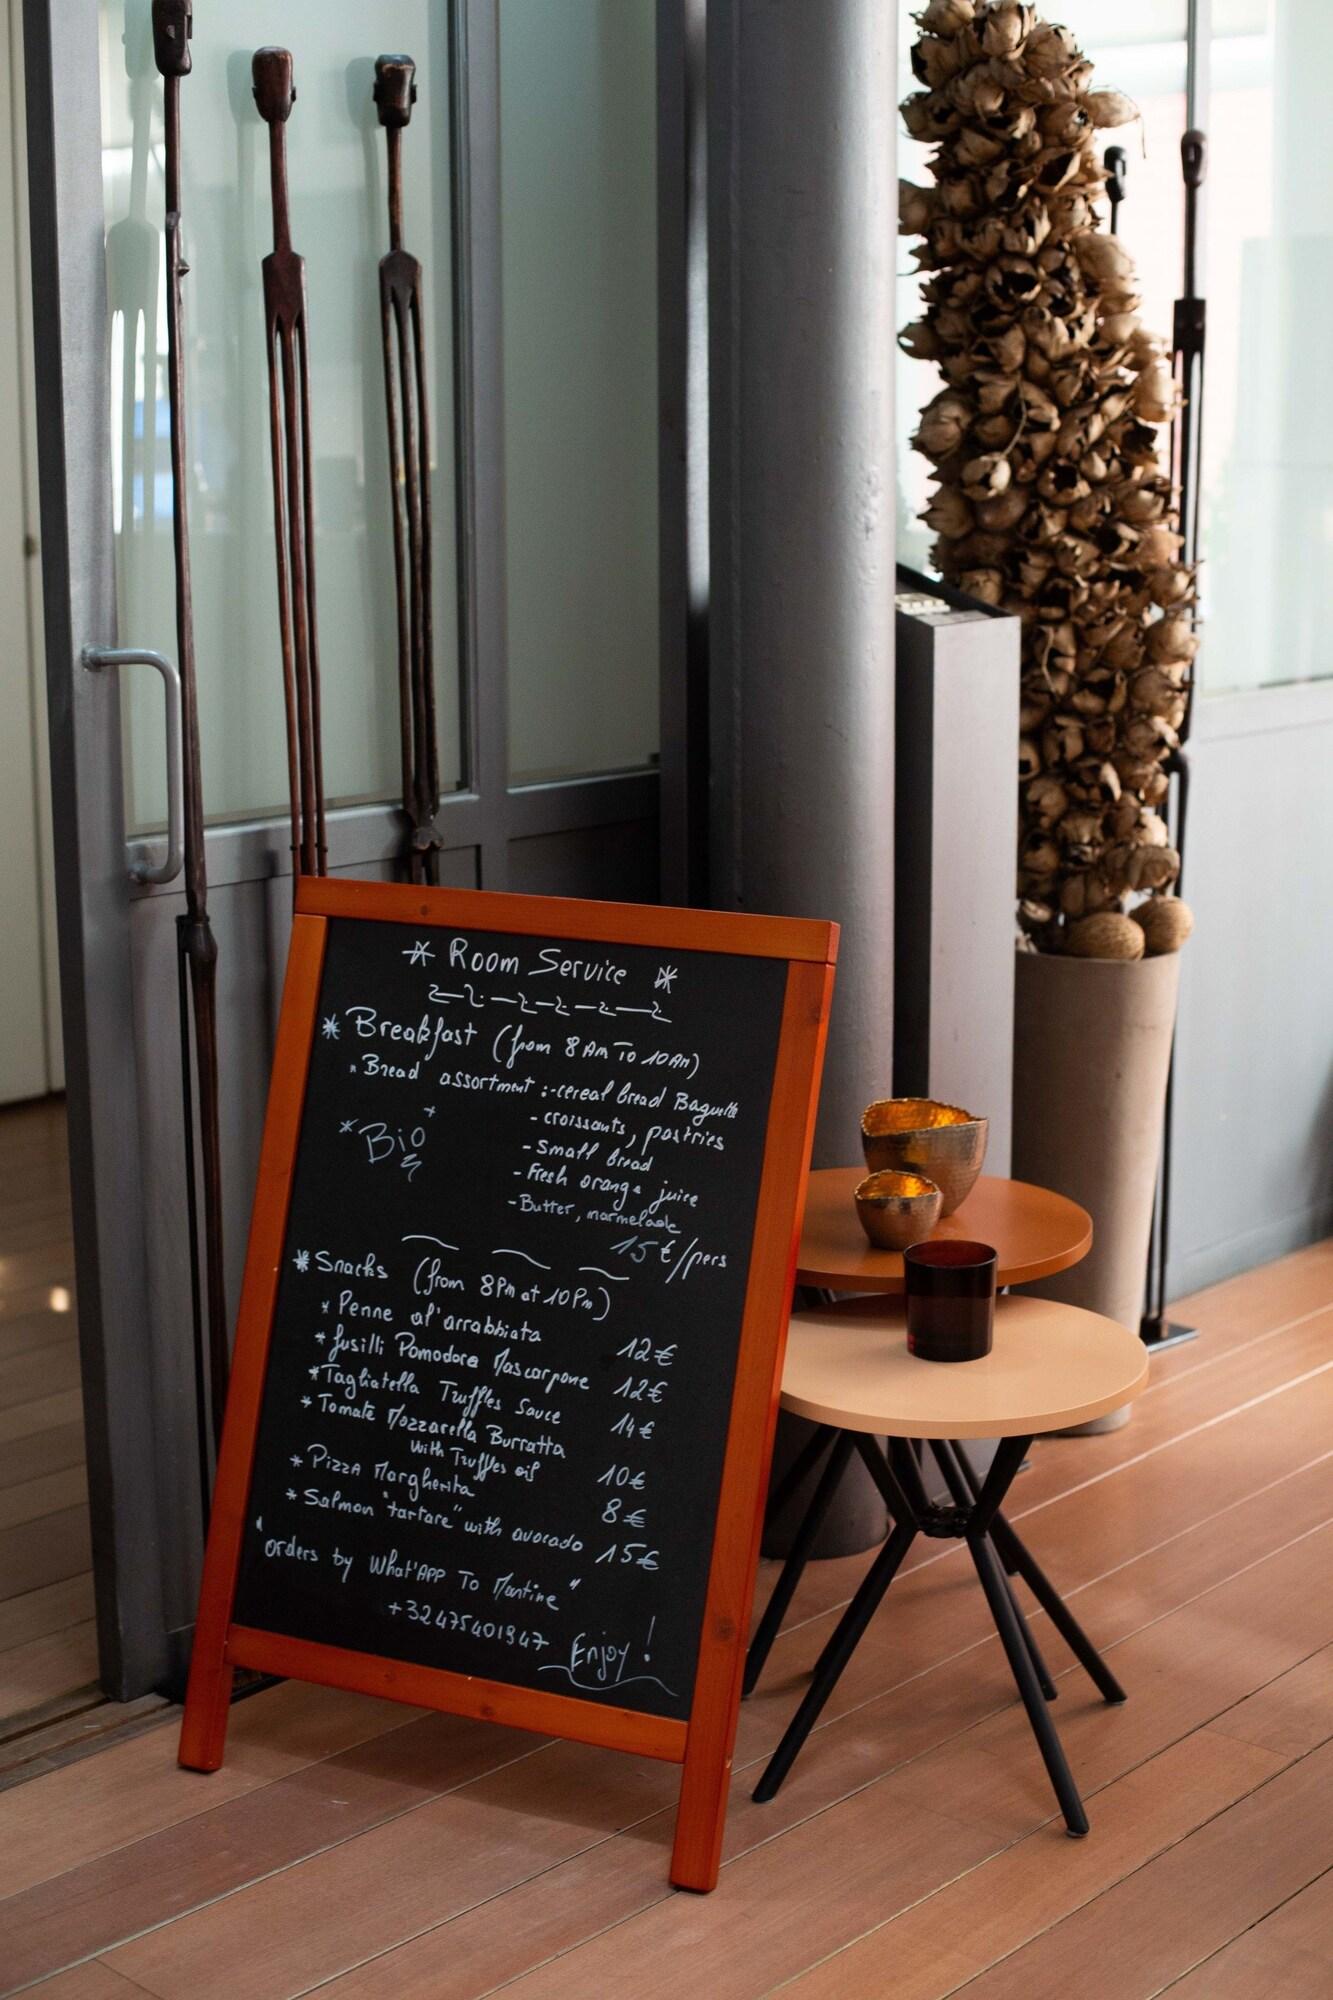 * Room Service *
* Breakfast (from 8AM To 10AM)
* Bread assortment :- cereal bread Baguette
- croissants, pastries
* Bio
- Small bread
- Fresh orange juice
- Butter, marmelade
15€/pers
* Snacks (from 8Pm at 10Pm)
* Penne al'arrabbiata 12€
* fusilli Pomodora Mascarpone 12€
* Tagliatella Truffles Sauce 14€
* Tomate Mozzarella Burratta
with Truffles oil 10€
* Pizza Margherita 8€
* Salmon "tartare" with avocado 15€
"orders by What'APP To Martine"
+32475401947
Enjoy !